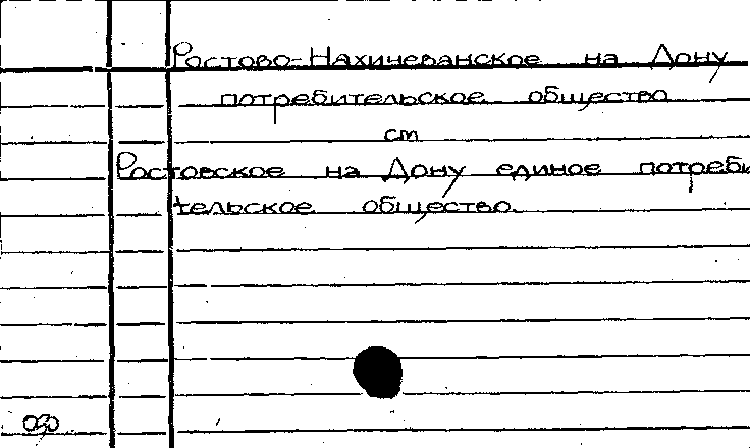 Ростово-Нахичеванское на Дону
потребительское общество
см
Ростовское на Дону единое потреби
тельское общество.